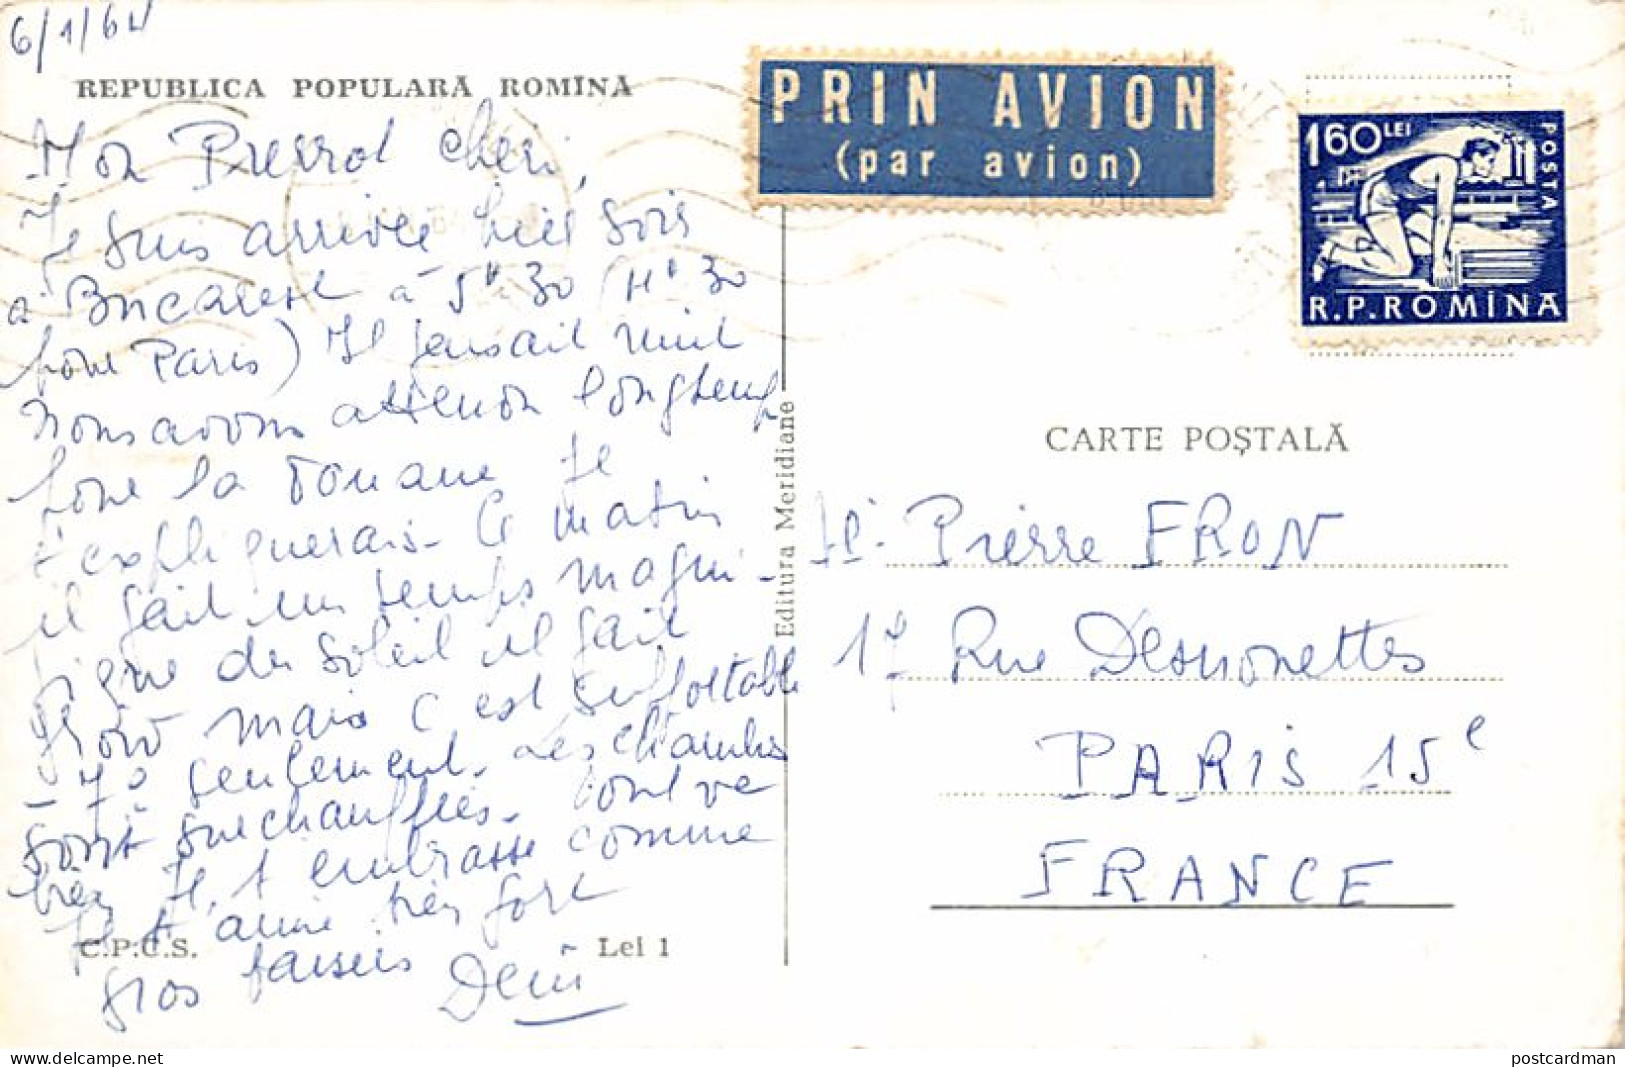 6/1/64
REPUBLICA POPULARĂ ROMÎNĂ
Mon Pierrot chéri,
Je suis arrivée hier soir
à Bucarest à 5h 30 (4h 30
pour Paris) Il faisait nuit
Nous avons attendu longtemps
pour la Douane Je
t'expliquerais - Ce matin
il fait un temps magni-
fique du soleil il fait
froid mais c'est supportable
- 7° seulement. Les chambres
sont surchauffées. Tout va
bien Je t'embrasse comme
je t'aime très fort
gros baisers
C.P.C.S.
Lei 1
PRIN AVION
(par avion)
1.60 LEI
POSTA
R.P.ROMÎNA
Editura Meridiane
CARTE POŞTALĂ
Mr Pierre FRON
17 Rue Desnonettes
PARIS 15e
FRANCE
postcardman
https://www.delcampe.net